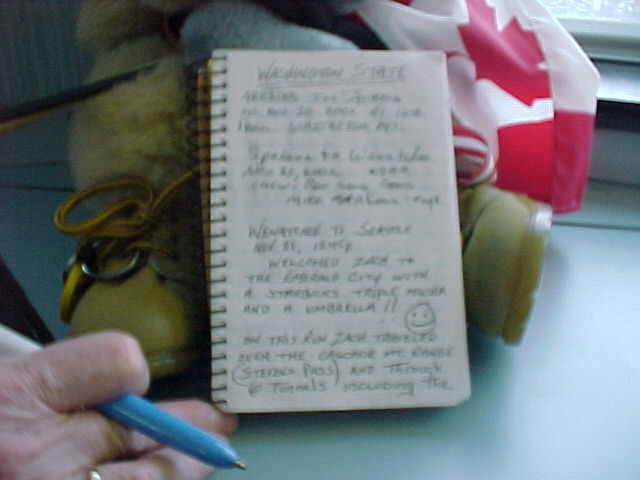 WASHINGTON STATE
ARRIVED IN SPOKANE
FROM
Spokane to Wenatchee
NOV 21, 2002
CREW:
MIKE
WENATCHEE TO SEATTLE
NOV 21,
WELCOMED ZACH TO
THE EMERALD CITY WITH
A STARBUCKS TRIPLE MOCHA
AND A UMBRELLA!!
ON THIS RUN ZACH TRAVELED
OVER THE CASCADE MT. RANGE
(STEVENS PASS) AND THROUGH
TUNNELS INCLUDING the